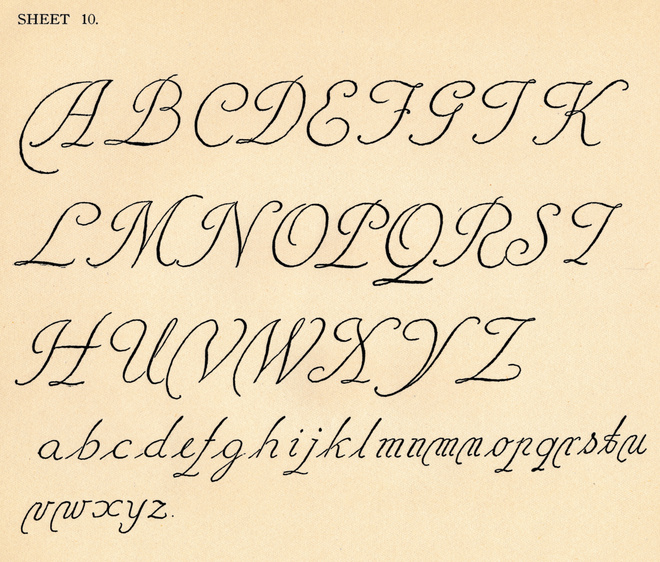 SHEET 10.
A B C D E F G I K
L M N O P Q R S T
H U V W X Y Z
a b c d e f g h i j k l m n m n o p q r s t u
v w x y z.